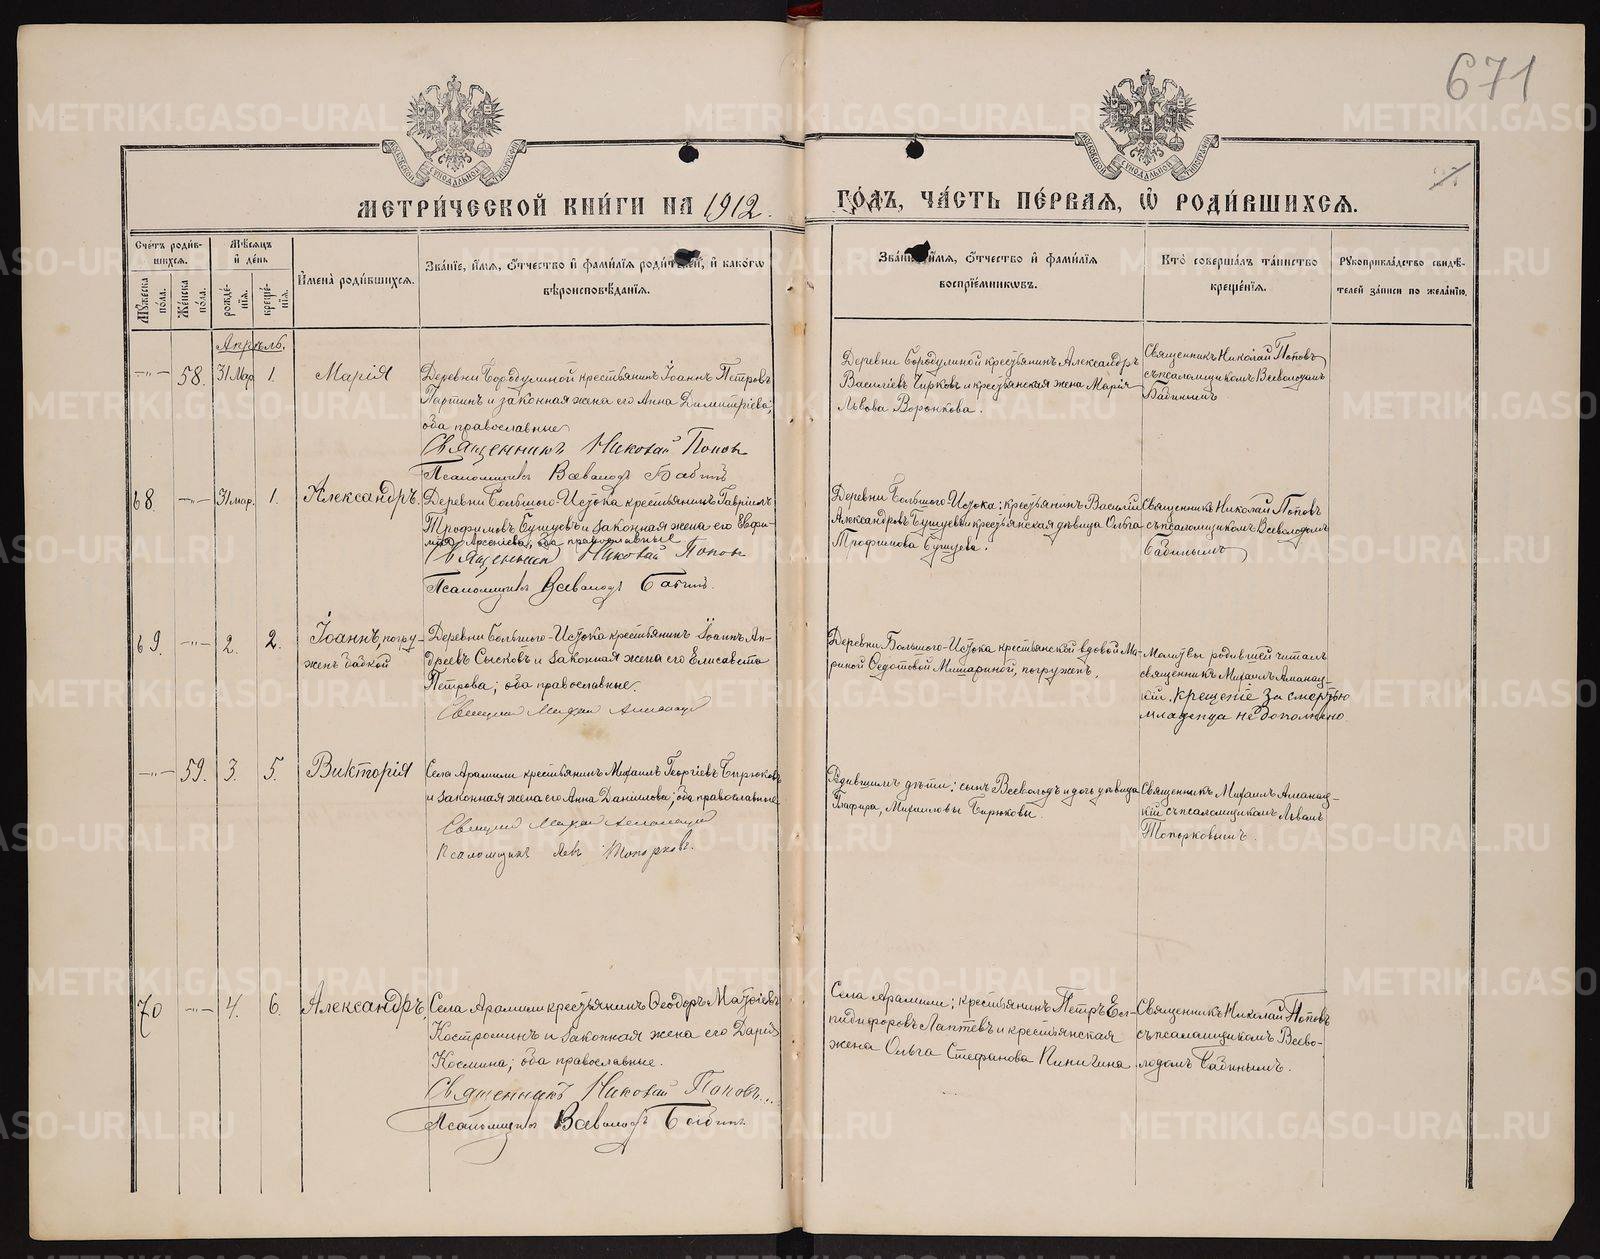 671
МЕТРИ́ЧЕСКОЙ КНИ́ГИ НА 1912.
ГО́ДЪ, ЧА́СТЬ ПЕ́РВАЯ, Ѡ РОДИ́ВШИХСЯ.
Сче́тъ роди́в-
шихся.
Мѣ́сяцъ
и де́нь
Мꙋ́жеска по́ла.
Же́нска по́ла.
рожде́-
нїя.
креще́-
нїя.
И́мена роди́вшихся.
Зва́нїе, и́мя, о́тчество и фами́лїя роди́телей, и како́гѡ
вѣроисповѣ́данїя.
Зва́нїе, и́мя, о́тчество и фами́лїя
воспрїе́мникѡвъ.
Кто̀ соверша́лъ та́инство
креще́нїя.
Рꙋкоприкла́дство свидѣ́-
телей за́писи по жела́нїю.
Апрѣль.
—"— 58. 31 Мар. 1. Марія
Деревни Бородулиной крестьянинъ Іоаннъ Петровъ
Партинъ и законная жена его Анна Димитріева;
оба православные
Священникъ Николай Поповъ
Псаломщикъ Всеволодъ Бабинъ
Деревни Бородулиной крестьянинъ Александръ
Василіевъ Чирковъ и крестьянская жена Марія
Львова Воронкова.
Священникъ Николай Поповъ
съ псаломщикомъ Всеволодомъ
Бабинымъ
68. —"— 31 мар. 1. Александръ.
Деревни Большого-Истока крестьянинъ Гавріилъ
Трофимовъ Бушуевъ и законная жена его Евфи-
мія Арсеніева, оба православные
Священникъ Николай Поповъ
Псаломщикъ Всеволодъ Бабинъ.
Деревни Большого-Истока; крестьянинъ Василій
Александровъ Бушуевъ и крестьянская дѣвица Ольга
Трофимова Бушуева.
Священникъ Николай Поповъ
съ псаломщикомъ Всеволодомъ
Бабинымъ
69. —"— 2. 2. Іоаннъ, погру-
женъ бабкой
Деревни Большого-Истока крестьянинъ Іоаннъ Ан-
дреевъ Сысковъ и законная жена его Елисавета
Петрова; оба православные.
Священникъ Михаилъ
Деревни Большого-Истока крестьянской вдовой Ма-
риной Седотовой Мишариной, погруженъ.
Молитвы родившей читалъ
священникъ Михаилъ Аманац-
кій. Крещеніе за смертью
младенца не дополнено
—"— 59. 3. 5. Викторія
Села Арамили крестьянинъ Михаилъ Георгіевъ Бирюковъ
и законная жена его Анна Даніилова; оба православные
Священникъ Михаилъ
Псаломщикъ Левъ Топорковъ.
Родившимъ дѣти: сынъ Всеволодъ и дочь дѣвица
Глафира, Михаиловы Бирюковы.
Священникъ Михаилъ Аманац-
кій съ псаломщикомъ Львомъ
Топорковымъ.
70 —"— 4. 6. Александръ
Села Арамили крестьянинъ Ѳеодоръ Матѳіевъ
Костроминъ и законная жена его Дарія
Космина; оба православные.
Священникъ Николай Поповъ.
Псаломщикъ Всеволодъ Бабинъ
Села Арамили; крестьянинъ Петръ Ел-
пидифоровъ Лаптевъ и крестьянская
жена Ольга Стефанова Пинигина
Священникъ Николай Поповъ
съ псаломщикомъ Всево-
лодомъ Бабинымъ.